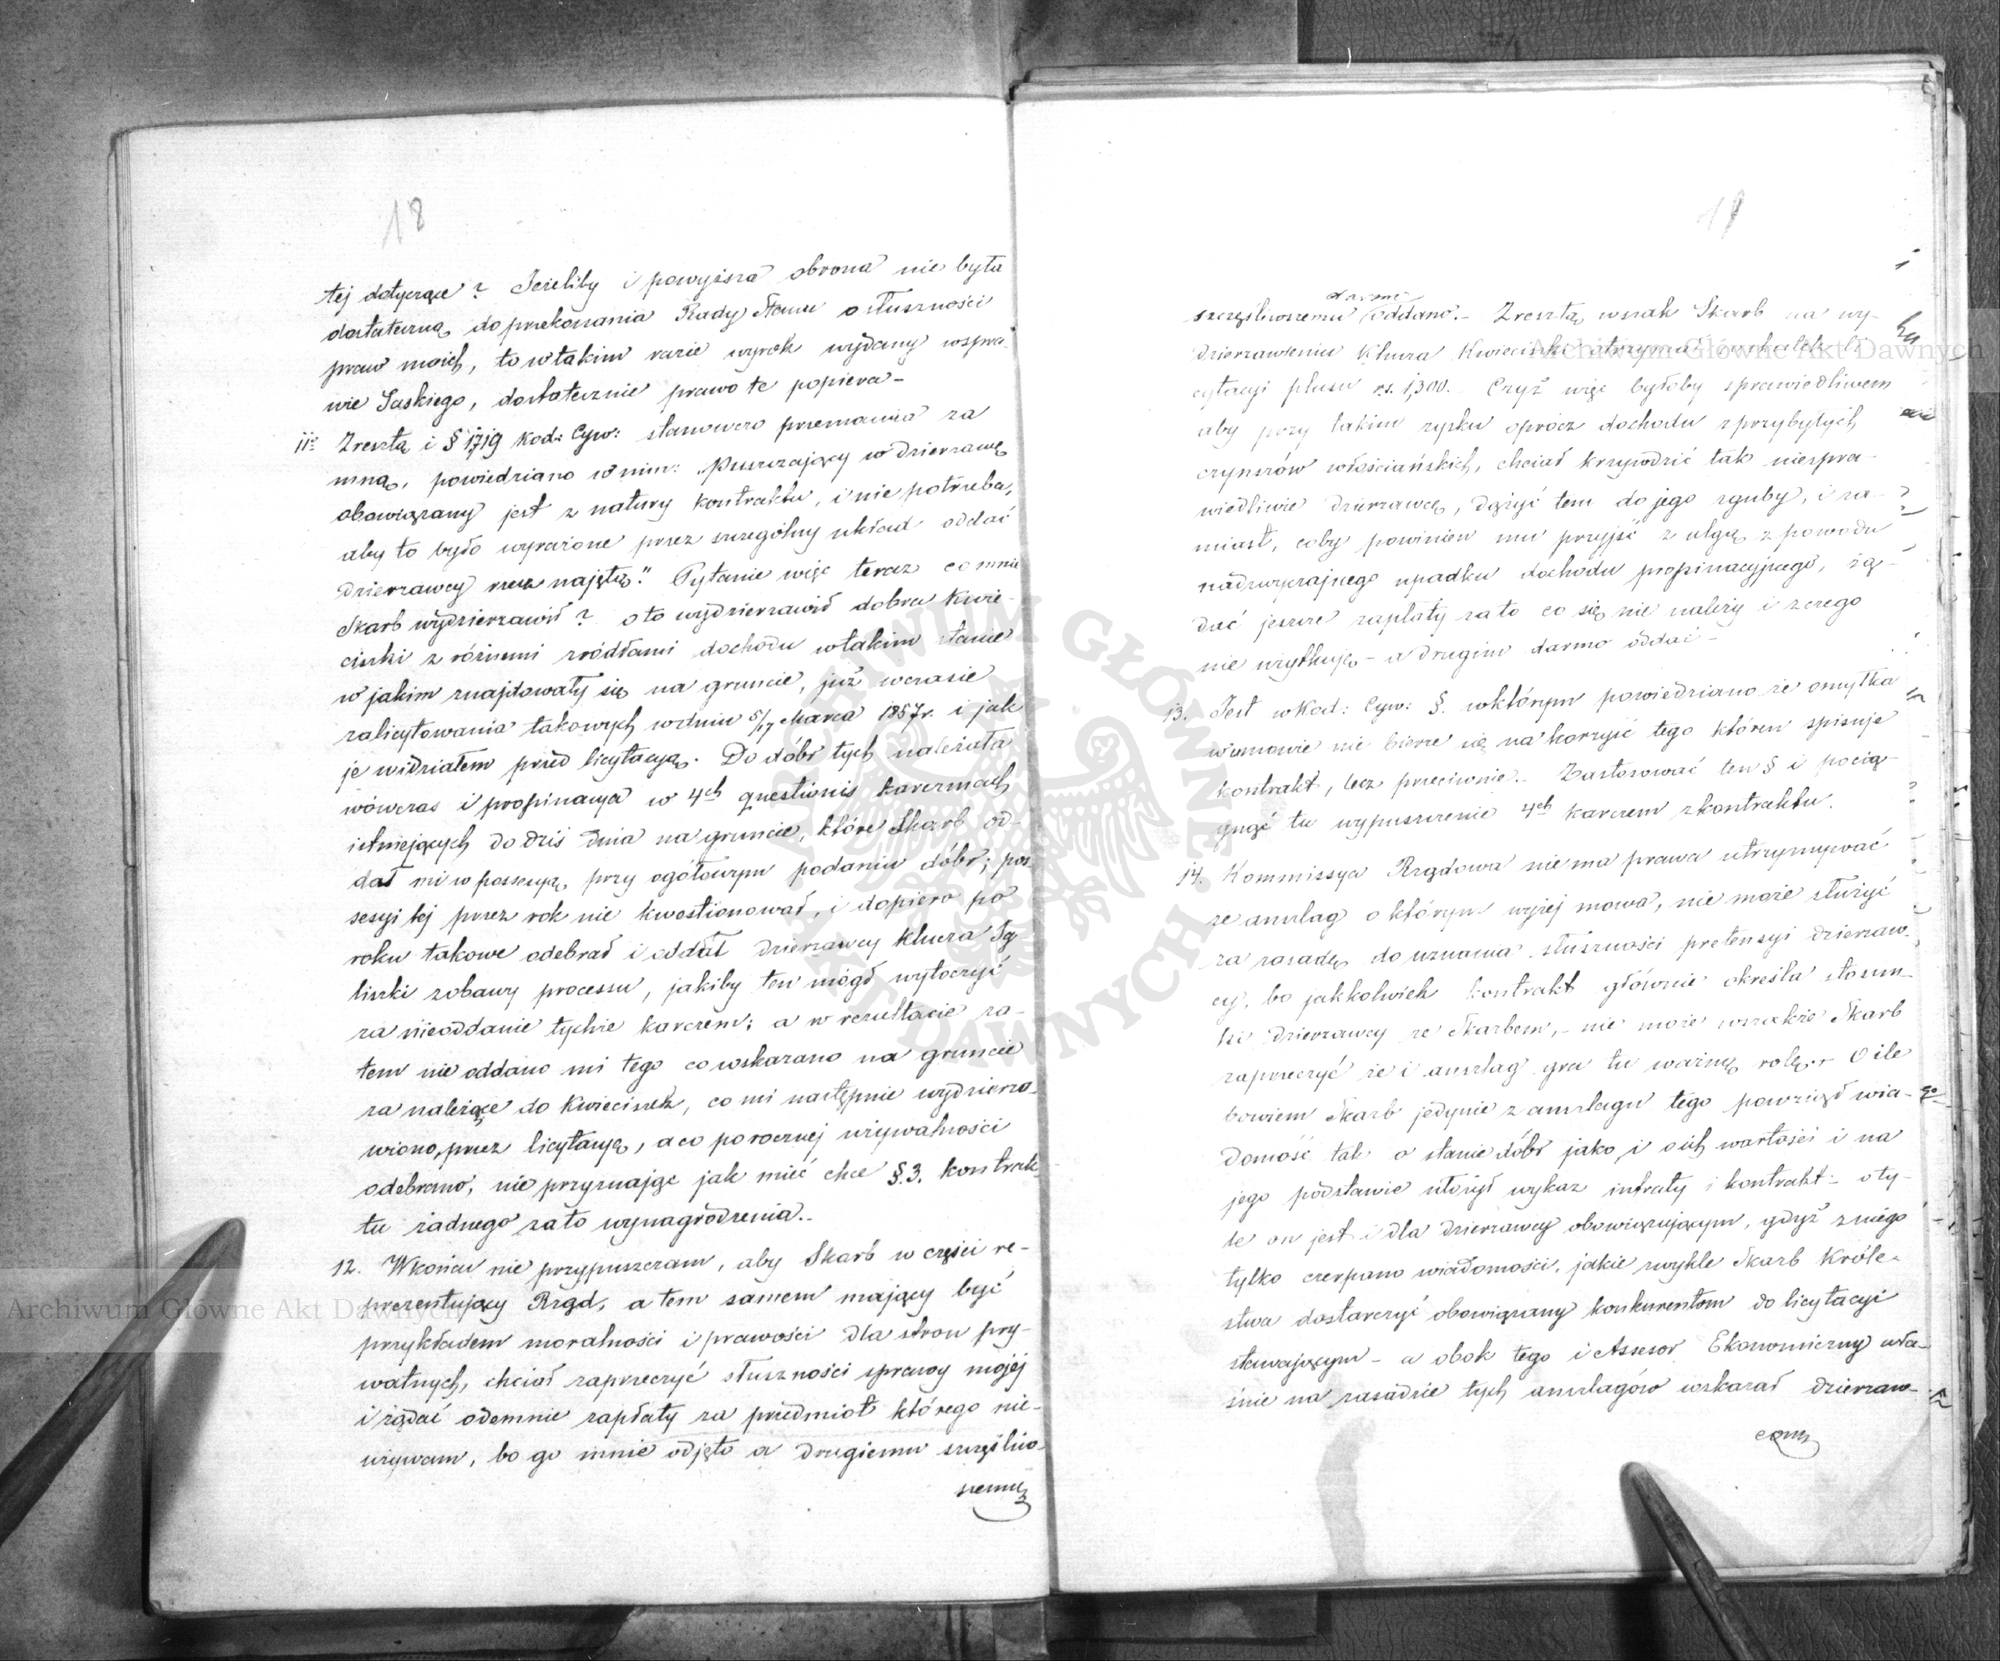 18
tej dotyczące? Jeżeliby i powyższa obrona nie była
dostateczną do przekonania Rady Stanu o słuszności
praw moich, to w takim razie wyrok wydany wspra-
wie Saskiego, dostatecznie prawo te popiera –
11o Zresztą i § 1719 Kod: Cyw: stanowczo przemawia za
mną, powiedziano w nim: „Puszczający w dzierzawę
obowiązany jest z natury kontraktu, i nie potrzeba,
aby to było wyrażone przez szczególny układ oddać
dzierzawcy rzecz najętą." Pytanie więc teraz co mnie
Skarb wydzierzawił? oto wydzierzawił dobra Kwie-
ciszki z różnemi źródłami dochodu w takim stanie
w jakim znajdowały się na gruncie, już wczasie
zalicytowania takowych w dniu 5/17 Marca 1857 r. i jak
je widziałem przed licytacyą. Do dóbr tych należała
wówczas i propinacya w 4ch questionis karczmach
istniejących do dziś dnia na gruncie, które Skarb od-
dał mi w possesyą przy ogółowym podaniu dóbr; pos-
sesyi tej przez rok nie kwestionował, i dopiero po
roku takowe odebrał i oddał dzierzawcy klucza Ig-
liszki z obawy processu, jakiby ten mógł wytoczyć
za nieoddanie tychże karczem; a w rezultacie za-
tem nie oddano mi tego co wskazano na gruncie
za należące do Kwieciszek, co mi następnie wydzierza-
wiono, przez licytacyą, a co po rocznej używalności
odebrano, nie przyznając jak mieć chce §. 3. kontrak-
tu żadnego za to wynagrodzenia. –
12. Wkońcu nie przypuszczam, aby Skarb w części re-
prezentujący Rząd, a tem samem mający być
przykładem moralności i prawości dla stron pry-
watnych, chciał zaprzeczyć słuszności sprawy mojej
i żądać odemnie zapłaty za przedmiot którego nie-
używam, bo go mnie odjęto a drugiemu szczęśliw-
szemu
19
darmo
szczęśliwszemu oddano. – Zresztą wszak Skarb na wy-
dzierzawieniu Klucza Kwieciszki otrzymał wskutek li-
cytacyi plusu rs. 1,300. – Czyż więc byłoby sprawiedliwem
aby przy takim zysku oprócz dochodu z przybyłych
czynszów włościańskich, chciał krzywdzić tak niespra-
wiedliwie dzierzawcę, dążyć tem do jego zguby, i za-
miast, coby powinien mu przyjść z ulgą z powodu
nadzwyczajnego upadku dochodu propinacyjnego, żą-
dać jeszcze zapłaty za to co się nie należy i z czego
nie użytkuję – a drugim darmo oddać –
13. Jest w Kod: Cyw: §. w którym powiedziano że omyłka
w umowie nie bierze się na korzyść tego który spisuje
kontrakt, lecz przeciwnie. – Zastosować ten § i pocią-
gnąć tu wypuszczenie 4ch karczem z kontraktu.
14. Kommissya Rządowa nie ma prawa utrzymywać
że anszlag o którym wyżej mowa, nie może służyć
za zasadę do uznania słuszności pretensyi dzierzaw-
cy, bo jakkolwiek kontrakt głównie określa stosun-
ki Dzierzawcy ze Skarbem, – nie może wszakże Skarb
zaprzeczyć że i anszlag gra tu ważną rolę. – O ile
bowiem Skarb jedynie z anszlagu tego powziął wia-
domość tak o stanie dóbr jako i o ich wartości i na
jego podstawie ułożył wykaz intraty i kontrakt – o ty-
le on jest i dla dzierzawcy obowiązującym, gdyż z niego
tylko czerpano wiadomości, jakie zwykle Skarb Króle-
stwa dostarczyć obowiązany konkurentom do licytacyi
stawającym – a obok tego i Assesor Ekonomiczny wła-
śnie na zasadzie tych anszlagów wskazał dzierzaw-
com
Archiwum Główne Akt Dawnych
Archiwum Główne Akt Dawnych
ARCHIWUM GŁÓWNE AKT DAWNYCH